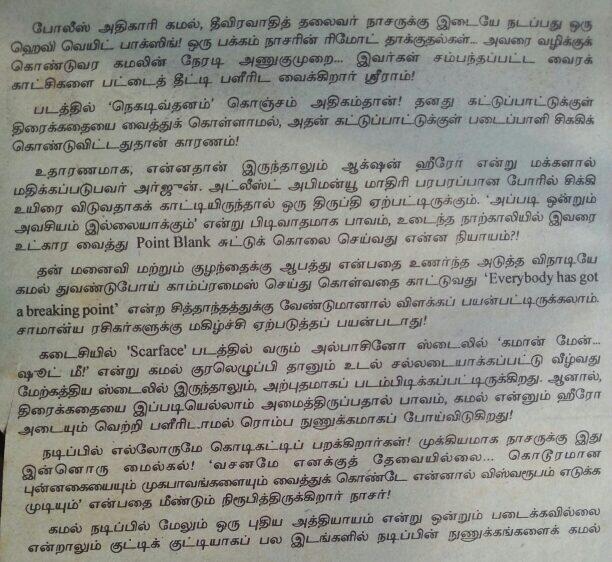 போலீஸ் அதிகாரி கமல், தீவிரவாதித் தலைவர் நாசருக்கு இடையே நடப்பது ஒரு
ஹெவி வெயிட் பாக்ஸிங்! ஒரு பக்கம் நாசரின் ரிமோட் தாக்குதல்கள்... அவரை வழிக்குக்
கொண்டுவர கமலின் நேரடி அணுகுமுறை... இவர்கள் சம்பந்தப்பட்ட வைரக்
காட்சிகளை பட்டைத் தீட்டி பளீரிட வைக்கிறார் ஸ்ரீராம்!
படத்தில் 'நெகடிவ்தனம்' கொஞ்சம் அதிகம்தான்! தனது கட்டுப்பாட்டுக்குள்
திரைக்கதையை வைத்துக் கொள்ளாமல், அதன் கட்டுப்பாட்டுக்குள் படைப்பாளி சிக்கிக்
கொண்டுவிட்டதுதான் காரணம்!
உதாரணமாக, என்னதான் இருந்தாலும் ஆக்ஷன் ஹீரோ என்று மக்களால்
மதிக்கப்படுபவர் அர்ஜுன். அட்லீஸ்ட் அபிமன்யூ மாதிரி பரபரப்பான போரில் சிக்கி
உயிரை விடுவதாகக் காட்டியிருந்தால் ஒரு திருப்தி ஏற்பட்டிருக்கும். 'அப்படி ஒன்றும்
அவசியம் இல்லையாக்கும்' என்று பிடிவாதமாக பாவம், உடைந்த நாற்காலியில் இவரை
உட்கார வைத்து Point Blank சுட்டுக் கொலை செய்வது என்ன நியாயம்?!
தன் மனைவி மற்றும் குழந்தைக்கு ஆபத்து என்பதை உணர்ந்த அடுத்த விநாடியே
கமல் துவண்டுபோய் காம்ப்ரமைஸ் செய்து கொள்வதை காட்டுவது 'Everybody has got
a breaking point' என்ற சித்தாந்தத்துக்கு வேண்டுமானால் விளக்கப் பயன்பட்டிருக்கலாம்.
சாமான்ய ரசிகர்களுக்கு மகிழ்ச்சி ஏற்படுத்தப் பயன்படாது!
கடைசியில் 'Scarface' படத்தில் வரும் அல்பாசினோ ஸ்டைலில் 'கமான் மேன்...
ஷூட் மீ!' என்று கமல் குரலெழுப்பி தானும் உடல் சல்லடையாக்கப்பட்டு வீழ்வது
மேற்கத்திய ஸ்டைலில் இருந்தாலும், அற்புதமாகப் படம்பிடிக்கப்பட்டிருக்கிறது. ஆனால்,
திரைக்கதையை இப்படியெல்லாம் அமைத்திருப்பதால் பாவம், கமல் என்னும் ஹீரோ
அடையும் வெற்றி பளீரிடாமல் ரொம்ப நுணுக்கமாகப் போய்விடுகிறது!
நடிப்பில் எல்லோருமே கொடிகட்டிப் பறக்கிறார்கள்! முக்கியமாக நாசருக்கு இது
இன்னொரு மைல்கல்! 'வசனமே எனக்குத் தேவையில்லை... கொடூரமான
புன்னகையையும் முகபாவங்களையும் வைத்துக் கொண்டே என்னால் விஸ்வரூபம் எடுக்க
முடியும்' என்பதை மீண்டும் நிரூபித்திருக்கிறார் நாசர்!
கமல் நடிப்பில் மேலும் ஒரு புதிய அத்தியாயம் என்று ஒன்றும் படைக்கவில்லை
என்றாலும் குட்டிக் குட்டியாகப் பல இடங்களில் நடிப்பின் நுணுக்கங்களைக் கமல்